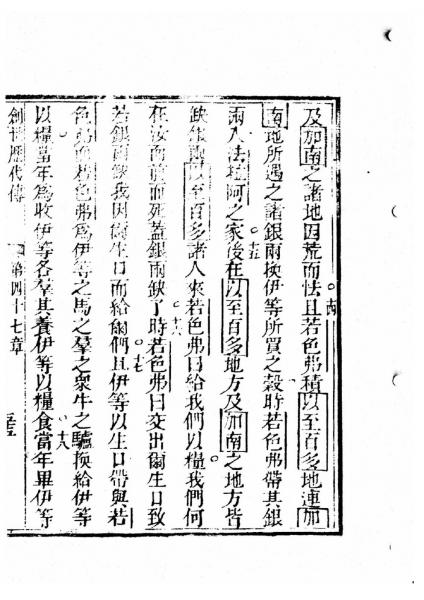 及加南之諸地因荒而怯且若色弗積以至百多地連加
十四
南地所遇之諸銀兩換伊等所買之穀時若色弗帶其銀
兩入法拉阿之家後在以至百多地方及加南之地方皆
十五
缺銀兩以至百多諸人來若色弗曰給我們以糧我們何
在汝面前而死蓋銀兩缺了時若色弗曰交出爾生口致
十六
若銀兩缺我因爾生口而給爾們且伊等以生口帶與若
十七
色弗而若色弗爲伊等之馬之羣之衆牛之驢換給伊等
以糧當年爲收伊等各羣其養伊等以糧食當年畢伊等
十八
創世歷代傳
第四十七章